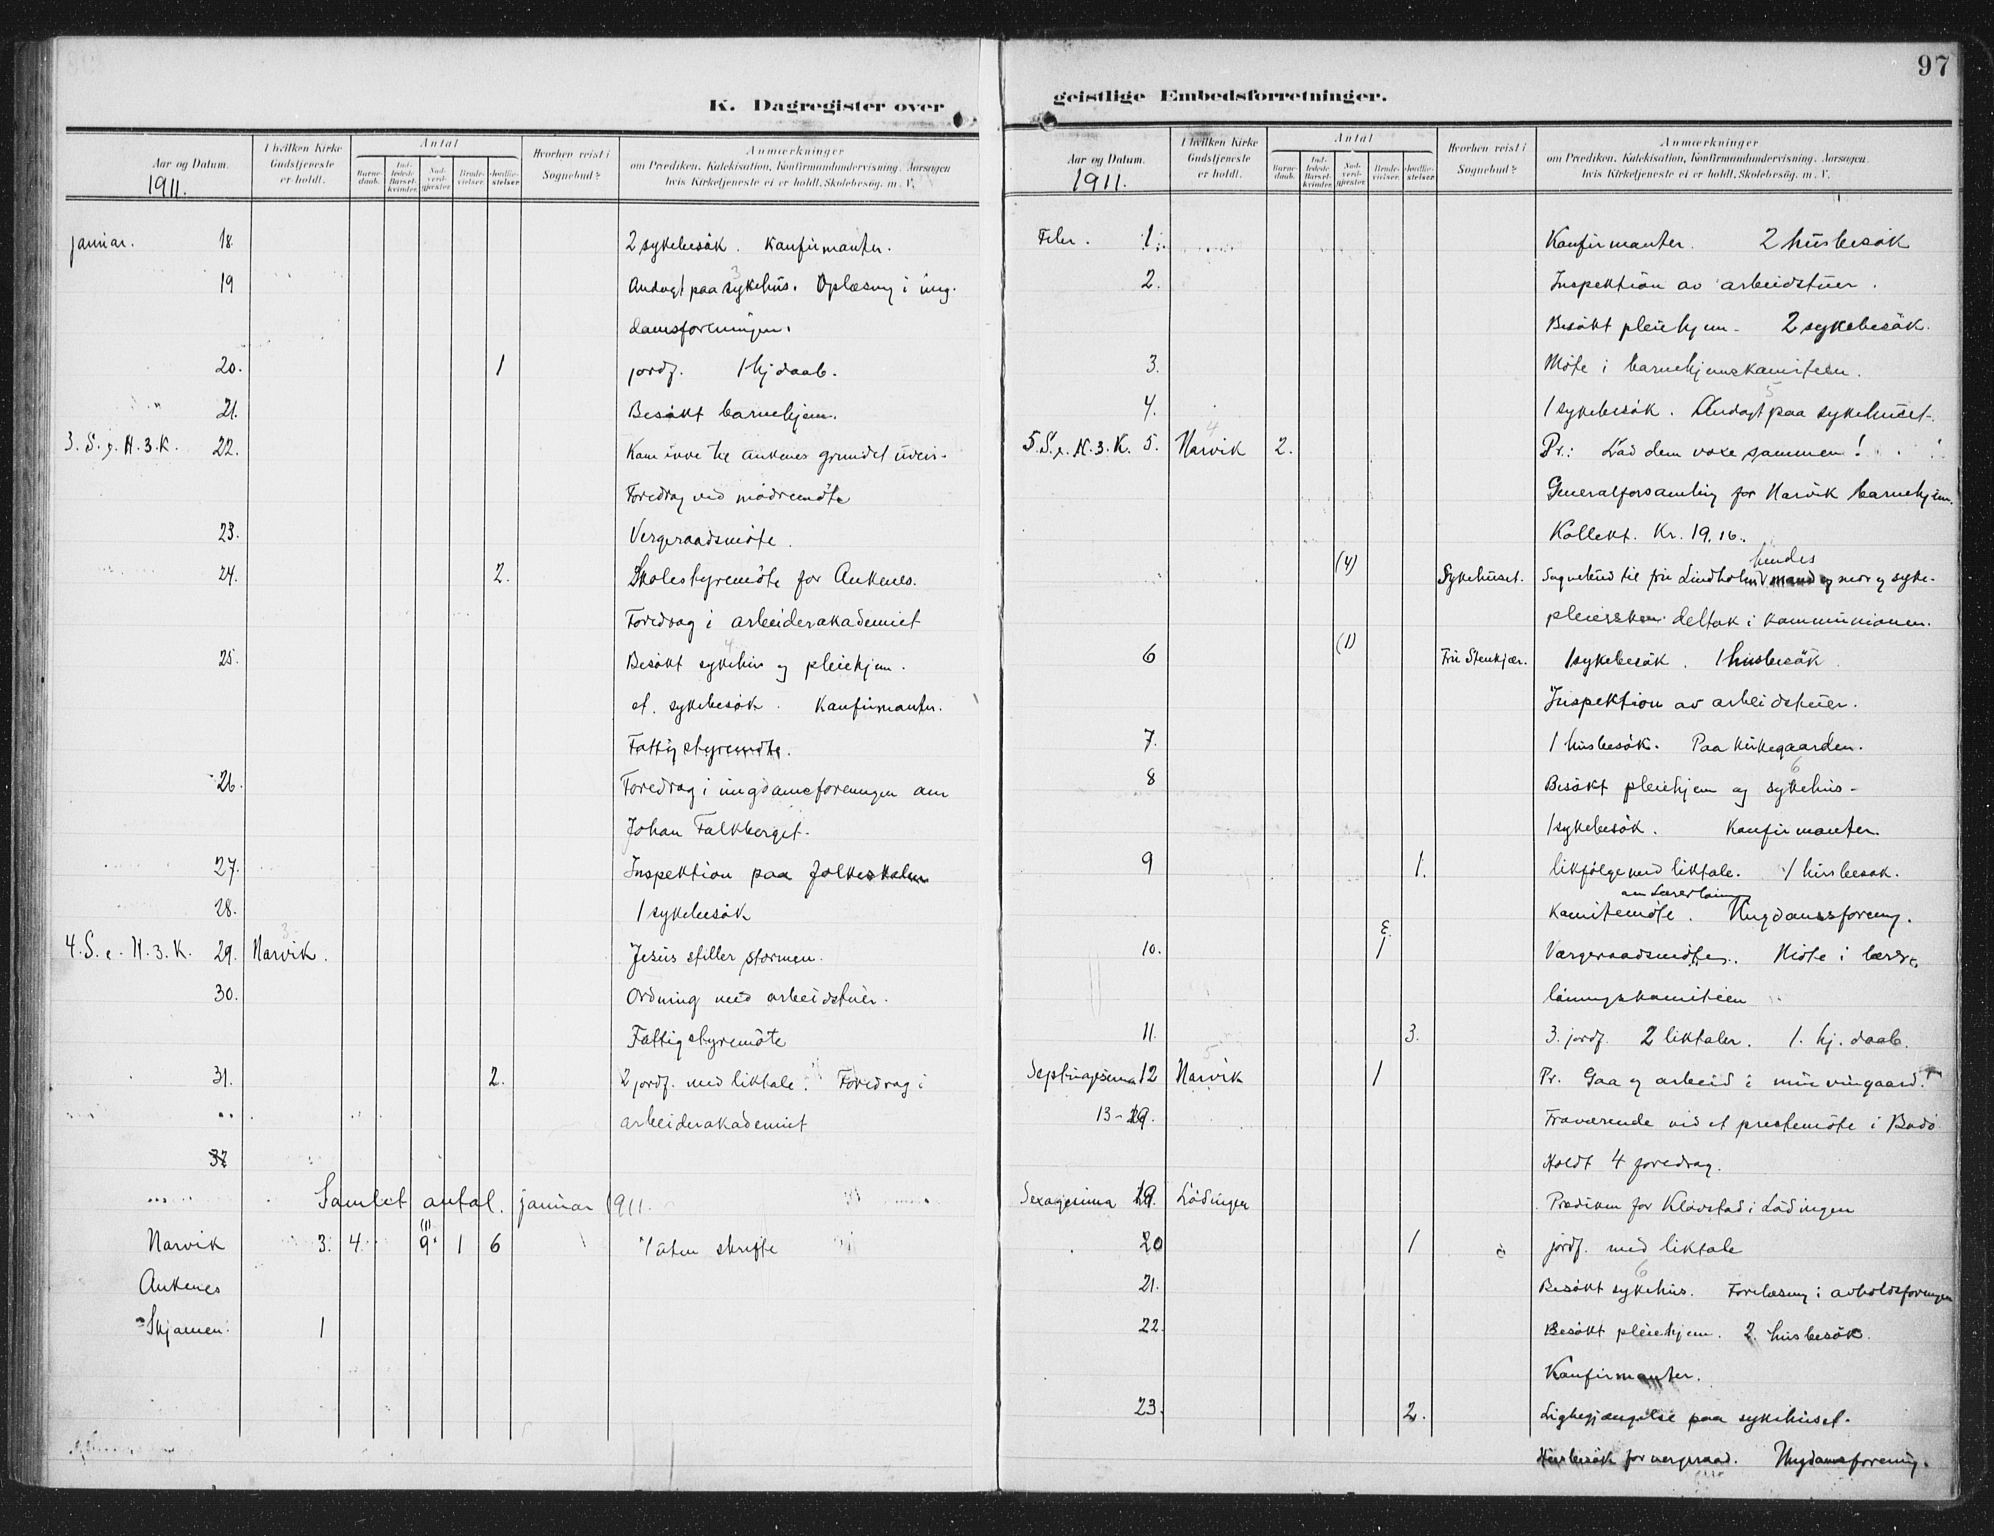 97
K. Dagregister over
Aar og Datum.
1911.
I hvilken Kirke Gudstjeneste er holdt.
Antal
Barne-daab.
Ind-ledede Barsel-kvinder.
Nad-verd-gjester.
Brude-vielser.
Jordfæ-stelser
Hvorhen reist i Sognebud?
Anmærkninger
om Prædiken, Katekisation, Konfirmandundervisning, Aarsagen
hvis Kirketjeneste ei er holdt, Skolebesøg, m. V.
januar. 18. 2 sykebesök. Konfirmanter.
19 Andagt paa sykehus. 3 Oplæsning i ung-
domsforeningen.
20. 1 jordf. 1 hj daab.
21. Besökt barnehjem.
3. S. e. H. 3. K. 22. Kom ikke til Ankenes grundet uveir.
Foredrag ved mödremöte
23. Vergeraadsmöte.
24. 2. Skolestyremöte for Ankenes.
Foredrag i arbeiderakademiet
25. Besökt sykehus og pleiehjem. 4
et. sykebesök. Konfirmanter.
Fattigstyremöte.
26. Foredrag i ungdomsforeningen om
Johan Falkberget.
27. Inspektion paa folkeskolen
28. 1 sykebesök
4. S. e. H. 3. K. 29. Narvik. 3. Jesus stiller stormen.
30. Ordning med arbeidstuer.
Fattigstyremöte
31. 2. 2 jordf. med liktale. Foredrag i
arbeiderakademiet
Samlet antal. januar 1911.
Narvik 3. 4. (1) 9. 1 6 1 uten skrifte
Ankenes
Skjomen. 1
geistlige Embedsforretninger.
Aar og Datum.
1911.
I hvilken Kirke Gudstjeneste er holdt.
Antal
Barne-daab.
Ind-ledede Barsel-kvinder.
Nad-verd-gjester.
Brude-vielser.
Jordfæ-stelser
Hvorhen reist i Sognebud?
Anmærkninger
om Prædiken, Katekisation, Konfirmandundervisning, Aarsagen
hvis Kirketjeneste ei er holdt, Skolebesøg, m. V.
Febr. 1. Konfirmanter. 2 husbesök
2. Inspektion av arbeidstuer.
Besökt pleiehjem. 2 sykebesök.
3. Möte i barnehjemskomiteen.
4. 1 sykebesök. Andagt paa sykehuset. 5
5. S. e. H. 3. K. 5. Narvik 4 2. Pr.: Lad dem voxe sammen!
Generalforsamling for Narvik barnehjem.
Kollekt. Kr. 19.16.
(4) Sykehuset. Sognebud til fru Lindholm hendes mand og mor og syke-
pleiersken deltok i kommunionen.
6 (1) Fru Stenkjær. 1 sykebesök. 1 husbesök.
Inspektion av arbeidstuer.
7. 1 husbesök. Paa kirkegaarden.
8 Besökt pleiehjem og sykehus. 6
1 sykebesök. Konfirmanter.
9 1. likfölge med liktale. 1 husbesök.
Komitemöte. Ungdomsforening.
10. 1 Værgeraadsmöte. Möte i lærer-
lönningskomiteen
11. 3. 3. jordf. 2 liktaler. 1. hj. daab.
Septuagesima 12 Narvik 5 1 Pr. Gaa og arbeid i min vingaard.
13-19. Fraværende ved et prestemöte i Bodö
Holdt 4 foredrag.
Sexagesima 19. Lödingen Prædiken for Klovstad i Lödingen
20 1 jordf. med liktale
21. Besökt sykehus. 6 Forelæsning i avholdsforeningen
22. Besökt pleiehjem. 2. husbesök.
Konfirmanter.
23. 2. Ligbegjængelse paa sykehuset.
Husbesök for vergeraad. Ungdomsforening.